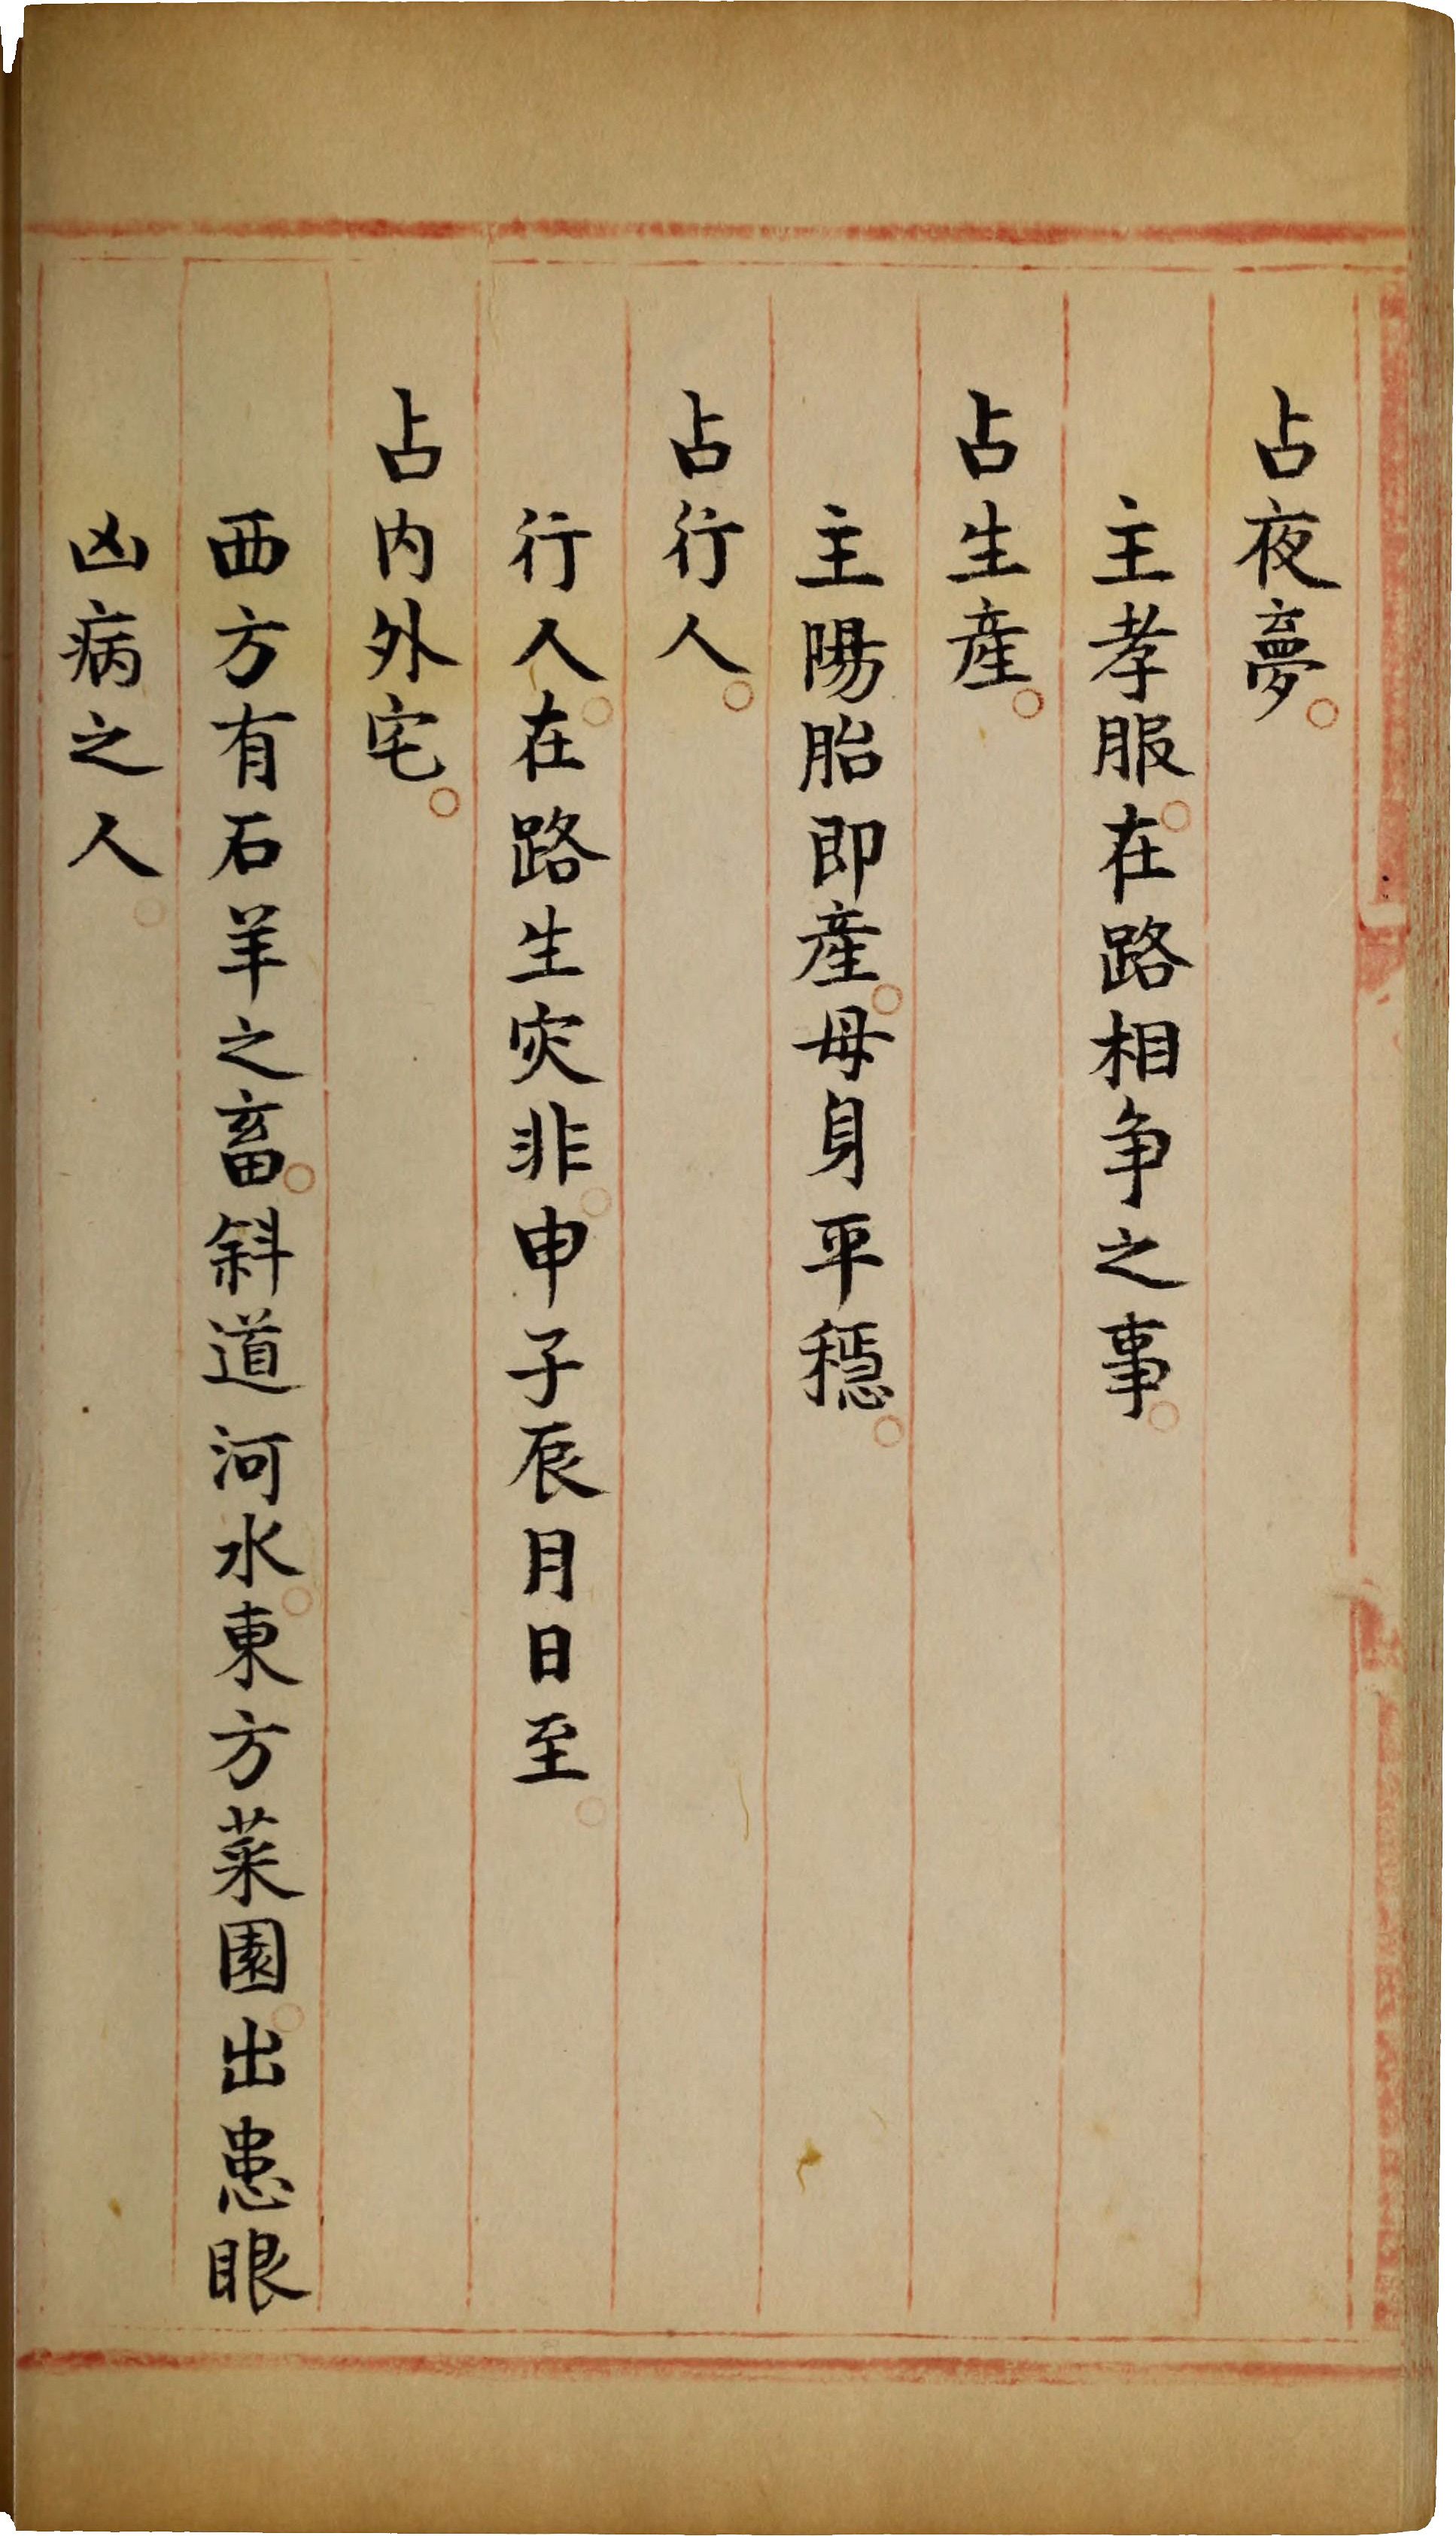 占夜夢。
主孝服。在路相争之事。
占生產。
主陽胎即產。母身平穩。
占行人。
行人。在路生灾非。申子辰月日至。
占内外宅。
西方有石羊之畜。斜道河水。東方菜園。出患眼
凶病之人。